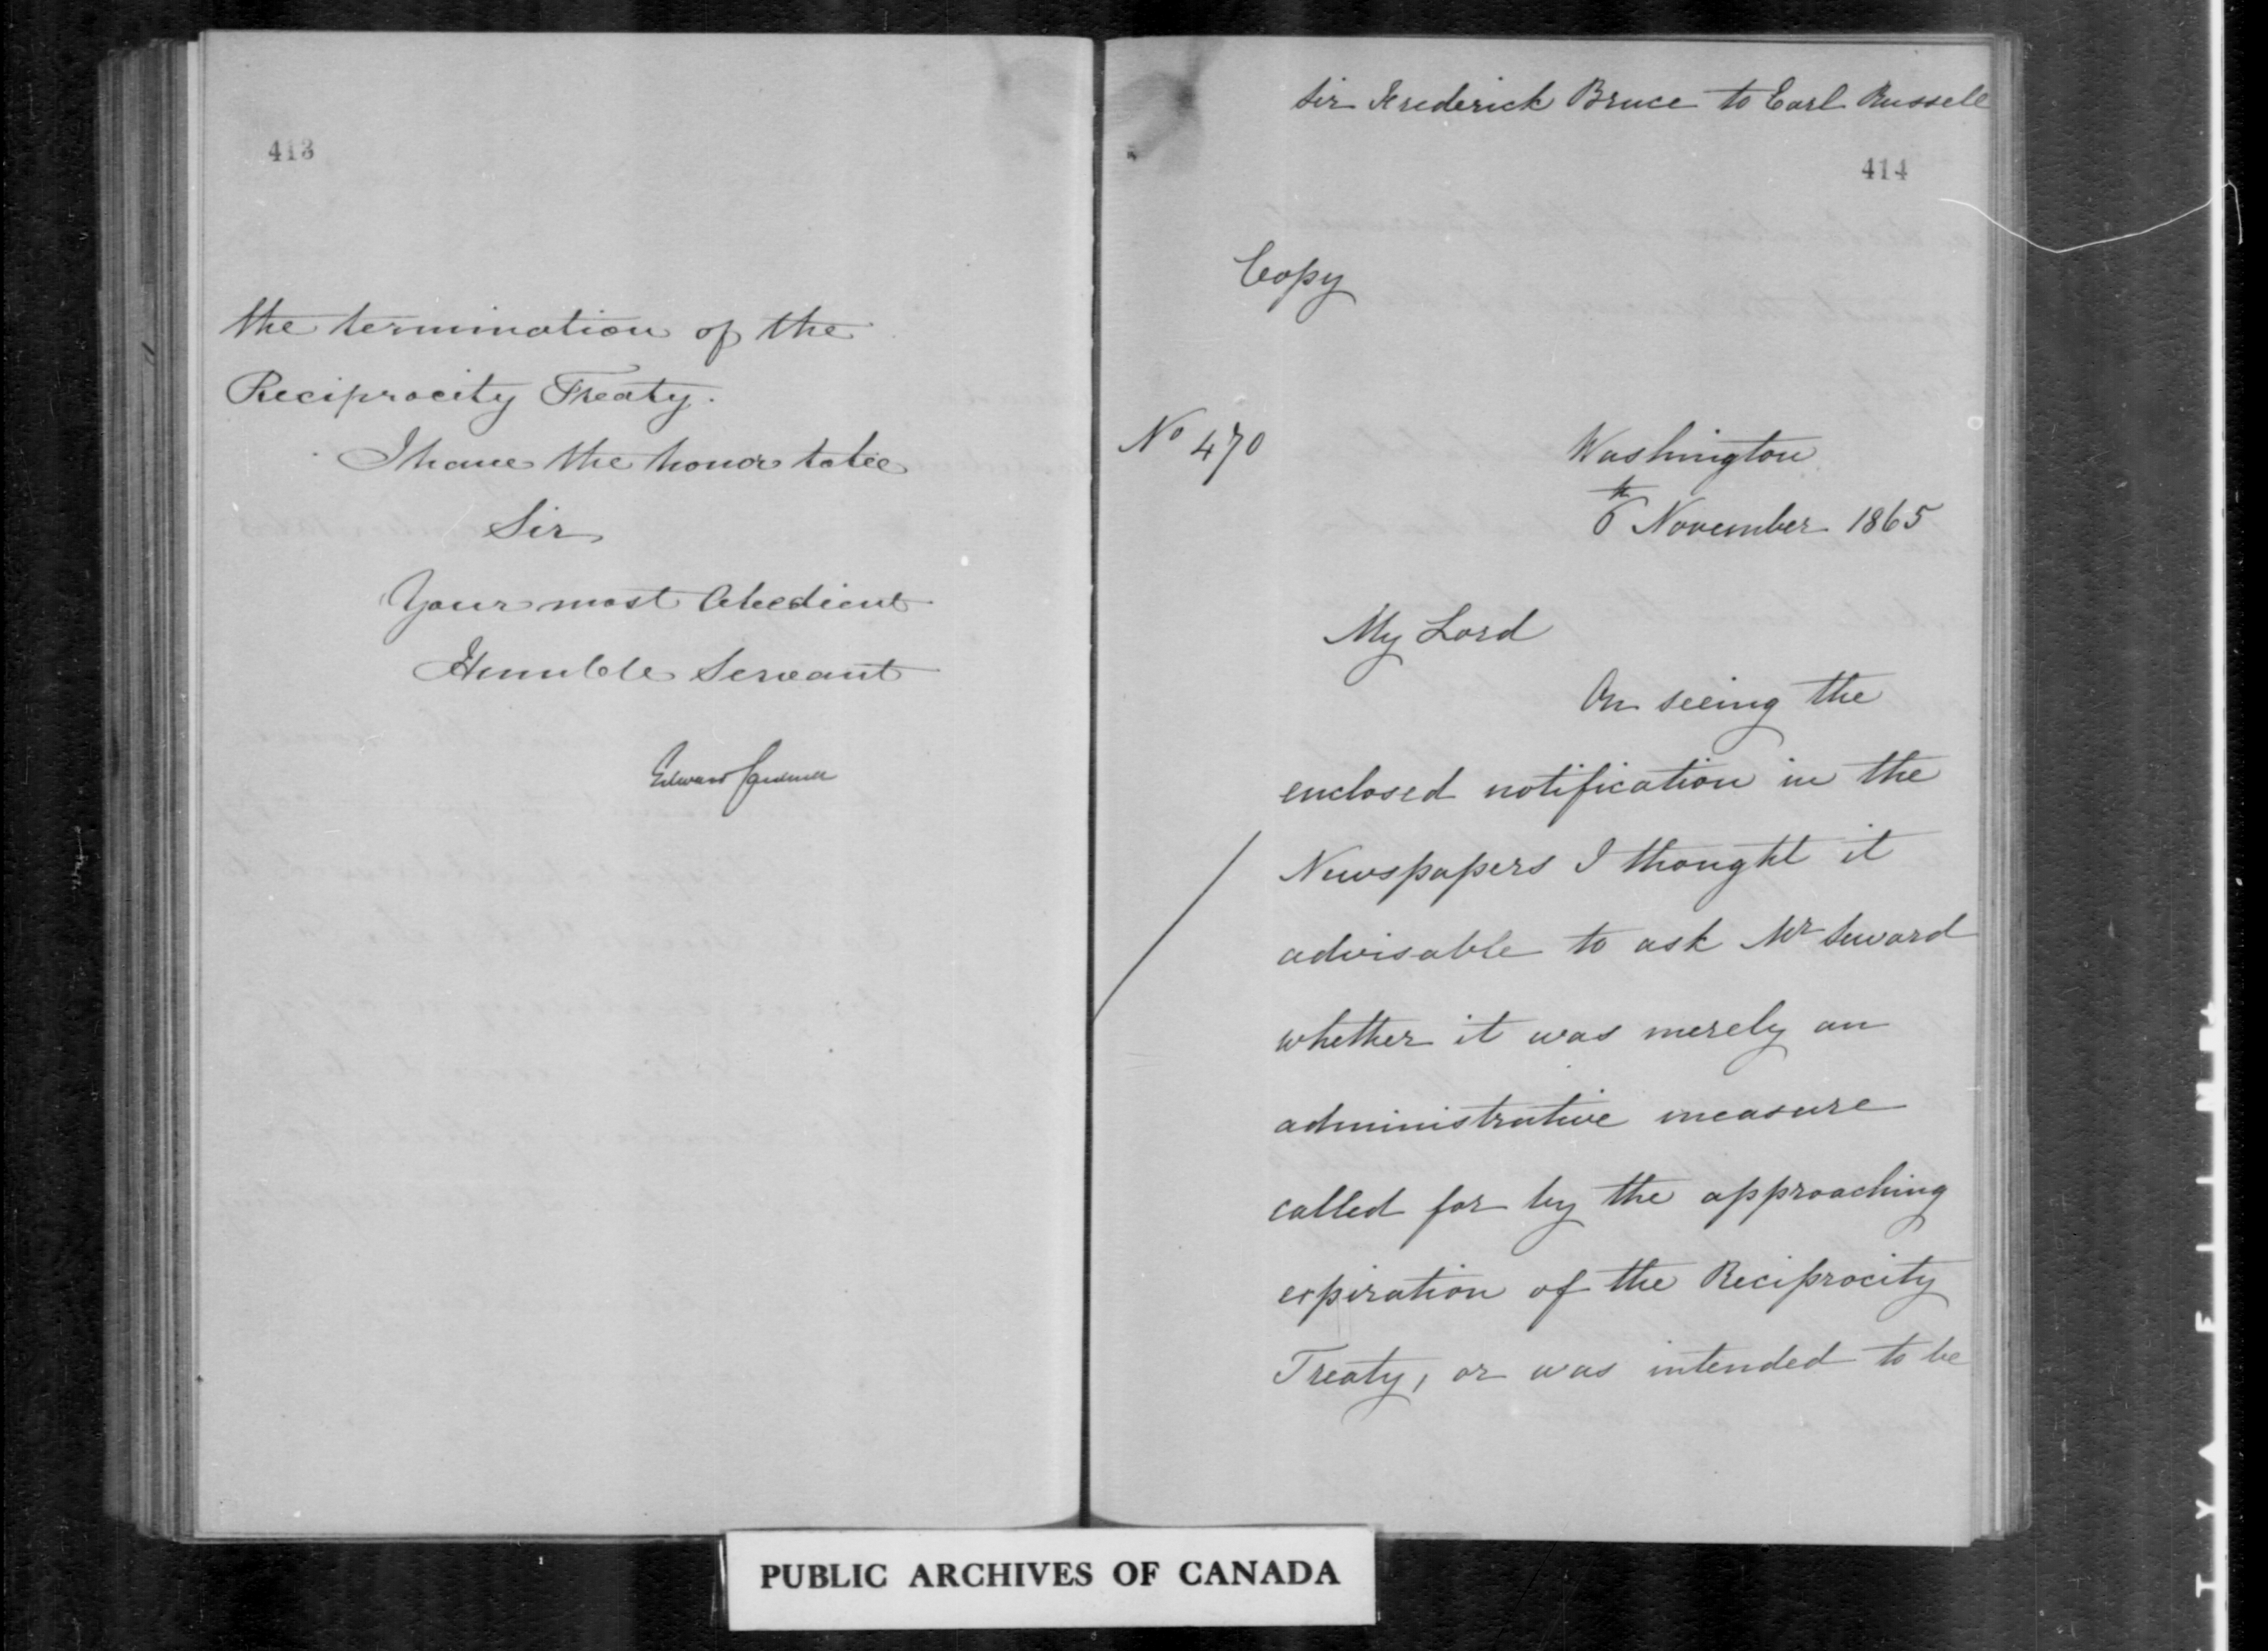 413
the termination of the
Reciprocity Treaty.
I have the honor to be
Sir
Your most Obedient
Humble Servant
Edward Cardwell
Sir Frederick Bruce to Earl Russell
414
Copy
No 470
Washington
6th November 1865
My Lord
On seeing the
enclosed notification in the
Newspapers I thought it
advisable to ask Mr Seward
whether it was merely an
administrative measure
called for by the approaching
expiration of the Reciprocity
Treaty, or was intended to be
PUBLIC ARCHIVES OF CANADA